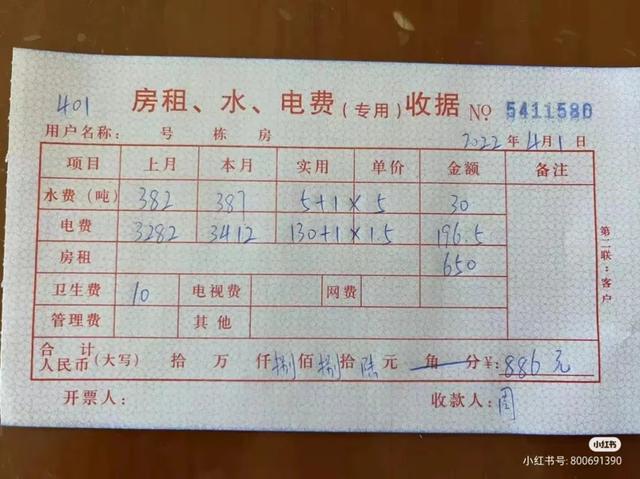 401 房租、水、电费(专用)收据 No 5411580
用户名称: 号 栋 房 2022年4月1日
项目 上月 本月 实用 单价 金额 备注
水费(吨) 382 387 5+1 × 5 30
电费 3282 3412 130+1 × 1.5 196.5
房租 650
卫生费 10 电视费 网费
管理费 其他
合计人民币(大写) 拾 万 仟捌佰捌拾陆元 角 分¥:886元
开票人: 收款人:周
第二联:客户
小红书
小红书号: 800691390